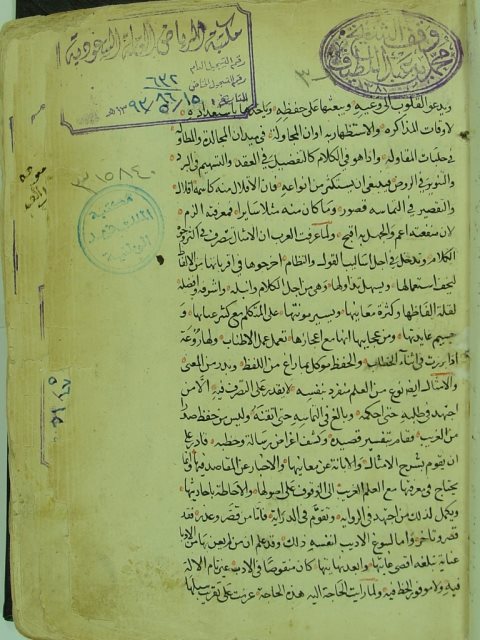 مكتبة الرياض العامة السعودية
رقم التسجيل العام
٦٣٢
رقم التسجيل الخاص
٨٦/١٥
١٣٩٣ هـ
٣١٥٨٤٠
٨٦/١٥
ويدعو القلوب الى وعيه ويبعثها على حفظه وياخذها باستعداده
لاوقات المذاكره والاستظهار به اوان المجاولة في ميدان المجادلة والمطاولة
في حلبات المقاولة وانما هو في الكلام كالتفصيل في العقد والتسهيم في البرد
والتنوير في الروض فينبغي ان يستكثر من انواعه فان الاقلال منه كاسمه اقلال
والتقصير في التماسه قصور وما كان منه مثلا سايرا فمعرفته الزم
لان منفعته اعم والجهل به اقبح ولما عرفت العرب ان الامثال تتصرف في اكثر وجوه
الكلام وتدخل في اجل اساليب القول والنظام اخرجوها في اقواها من الالفاظ
ليخف استعمالها ويسهل تداولها وهي من اجل الكلام وانبله واشرفه وافضله
لقلة الفاظها وكثرة معانيها ويسير مونتها على المتكلم مع كثير عنايتها و
جسيم عايدتها ومن عجايبها انها مع ايجازها تعمل عمل الاطناب ولها روعة
اذا برزت في اثناء الخطاب والحفظ موكل بما راع من اللفظ وندر من المعنى
والامثال ايضا نوع من العلم منفرد بنفسه لا يقدر على التصرف فيه الا من
اجتهد في طلبه حتى احكمه وبالغ في التماسه حتى اتقنه وليس من حفظ صدرا
من الغريب فقام بتفسير قصيده وكشف اغراض رسالة وخطبه قادرا على
ان يقوم بشرح الامثال والابانة عن معانيها والاخبار عن المقاصد فيها وانما
يحتاج في معرفتها مع العلم بالغريب الى الوقوف على اصولها والاحاطة باحاديثها
ويكمل لذلك من اجتهد في الرواية وتقدم في الدراية فاما من قصر وعذر فقد
قصر وتاخر وانما يسوغ الاديب لنفسه ذلك وقد علم ان من لم يعن بها من الادباء
عناية تبلغه اقصى غاياتها وابعد نهاياتها كان منقوصا في الادب غير تام الالة
فيه ولا موفور الحظ فيه ولما رايت الحاجة اليه هذه الحاجة عزمت على تقريب سبلها